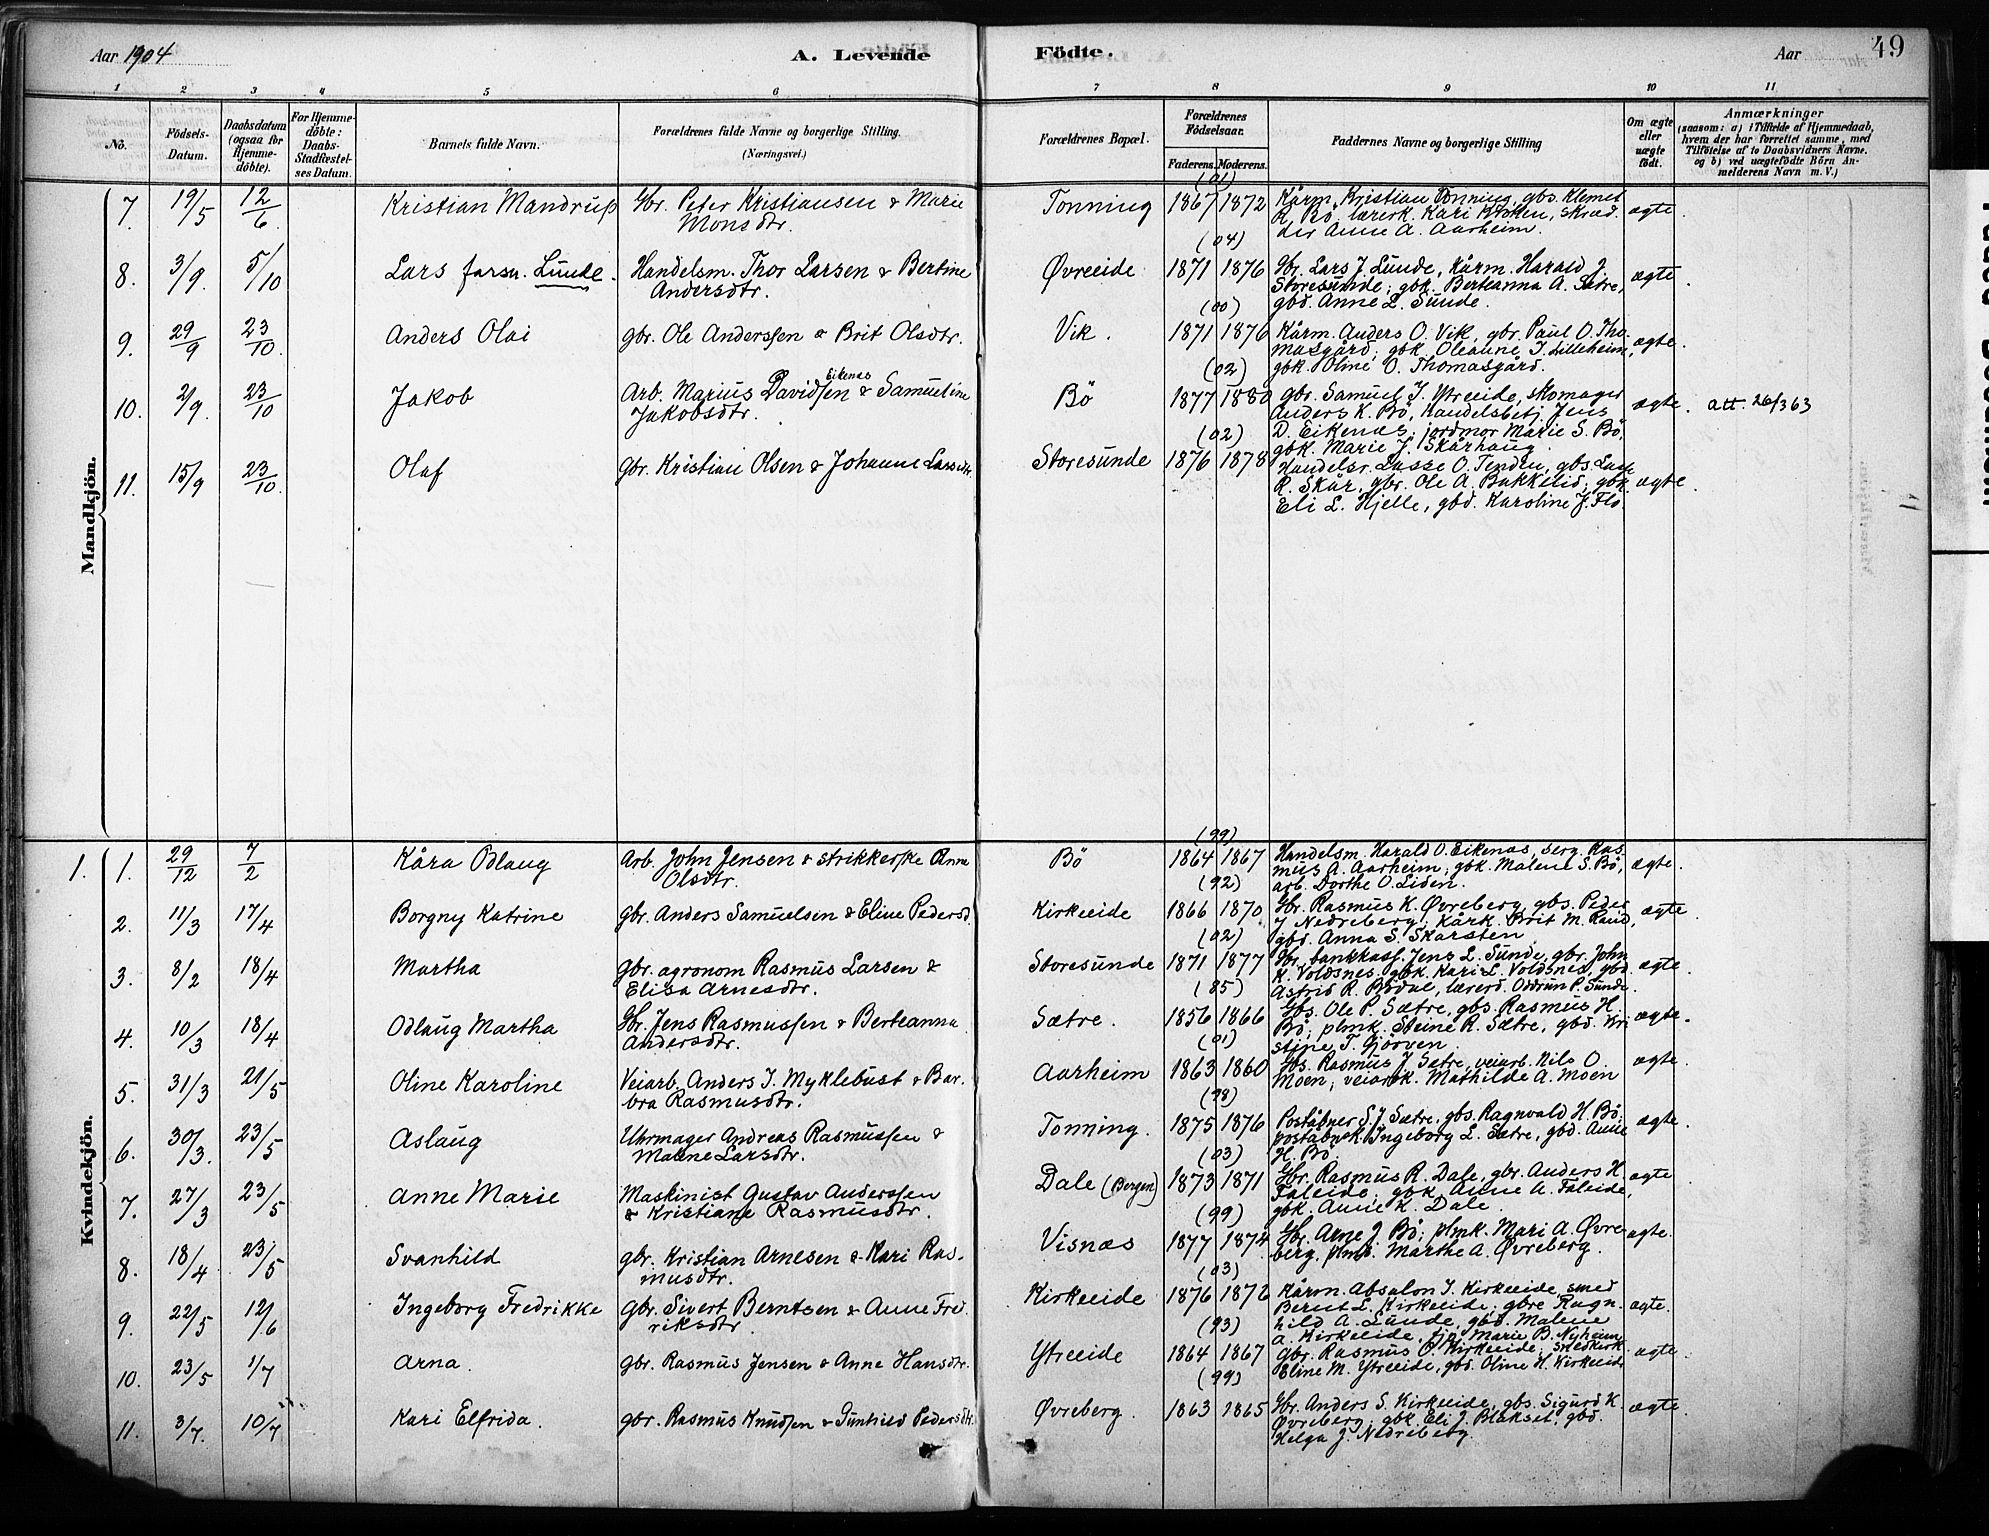 Aar 1904
A. Levende
Födte.
Aar
49
1 2 3 4 5 6 7 8 9 10 11
No.
Födsels-Datum.
Daabsdatum (ogsaa for Hjemme-döbte).
For Hjemme-döbte: Daabs-Stadfæstel-ses Datum.
Barnets fulde Navn.
Forældrenes fulde Navne og borgerlige Stilling.
(Næringsvei.)
Forældrenes Bopæl.
Forældrenes Födselsaar.
Faderens. Moderens.
Faddernes Navne og borgerlige Stilling
Om ægte eller uægte födt.
Anmærkninger
(saasom: a) i Tilfælde af Hjemmedaab, hvem der har forrettet samme, med Tilföielse af to Daabsvidners Navne. og b) ved uægtefödte Börn An-melderens Navn m. V.)
Mandkjön.
7. 19/5 12/6 Kristian Mandrup Gbr. Peter Kristiansen & Marie Tonning (01) 1867 1872 Kårm. Kristian Tonning, gbs. Klemet ægte.
Monsdtr. K. Bö, lærerk. Kari, skræd.
der Anne A. Aarheim.
8. 3/9 5/10 Lars Lunde. Handelsm. Thor Larsen & Bertine Øvreeide (04) 1871 1876 Gbr. Lars J. Lunde, kårm. Harald J. ægte.
Andersdtr. Storesunde; gbk. Berteanna A. Sætre,
gbd. Anne L. Sunde.
9. 29/9 23/10 Anders Olai gbr. Ole Anderssen & Brit Olsdtr. Vik. (00) 1871 1876 Kårm. Anders O. Vik, gbr. Paul O. Tho- ægte.
masgård; gbk. Oleanne J. Lilleheim,
gbk. Oline O. Thomasgård.
10. 2/9. 23/10 Jakob Arb. Marius Davidsen Eikenæs & Samueline Bö (02) 1877 1880 gbr. Samuel J. Ytreeide, skomager ægte. att. 26/3 63
Jakobsdtr. Anders K. Bö, handelsbetj. Jens
D. Eikenæs; jordmor Marie S. Bö,
gbk. Marie J. Skårhaug.
11. 15/9 23/10 Olaf gbr. Kristian Olsen & Johanne Larsdtr. Storesunde (02) 1876 1878 Handelsr. Lasse O. Tenden, gbs. Lasse ægte.
R. Skår, gbr. Ole A. Bakkelid; gbk.
Eli L. Hjelle, gbd. Karoline J. Flo.
Kvindekjön.
1. 1. 29/12 7/2 Kåra Odlaug Arb. John Jensen & strikkerske Anna Bö (99) 1864 1867 Handelsm. Harald O. Eikenæs, serg. Ras- ægte.
Olsdtr. mus A. Aarheim; gbk. Malene S. Bö,
arb. Dorthe O. Liden.
2. 11/3 17/4 Borgny Katrine gbr. Anders Samuelsen & Eline Pedersd. Kirkeeide (92) 1866 1870 Gbr. Rasmus K. Øvreberg, gbs. Peder ægte.
J. Nedreberg; kårk. Brit M. Rand,
gbd. Anna S. Skarsten
3. 8/2 18/4 Martha gbr. agronom Rasmus Larsen & Storesunde (02) 1871 1877 Gbr. bankkass. Jens L. Sunde, gbr. John ægte.
Elisa Arnesdtr. K. Voldsnes. gbk. Kari L. Voldsnes, gbd.
Astrid R. Bödal, lærerd. Oddrun P. Sunde.
4. 10/3 18/4 Odlaug Martha Gbr. Jens Rasmussen & Berteanna Sætre. (85) 1856 1866 Gbs. Ole P. Sætre, gbs. Rasmus H. ægte.
Andersdtr. Bö; plmk. Steine R. Sætre, gbd. Kri
stine T. Gjörven.
5. 31/3 21/5 Oline Karoline Veiarb. Anders J. Myklebust & Bar- Aarheim (01) 1863 1860 Gbs. Rasmus J. Sætre, veiarb. Nils O. ægte
bra Rasmusdtr. Moen; veiarbk. Mathilde A. Moen
6. 30/3. 23/5 Aslaug Uhrmager Andreas Rasmussen & Tonning. (98) 1875 1876 Poståbner S. J. Sætre, gbs. Ragnvald H. Bö; ægte.
Malene Larsdtr. poståbnk. Ingeborg L. Sætre, gbd. Anne
H. Bö.
7. 27/3 23/5 Anne Marie Maskinist Gustav Anderssen Dale (Bergen) (03) 1873 1871 Gbr. Rasmus R. Dale, gbr. Anders H. ægte
& Kristiane Rasmusdtr. Faleide; gbk. Anne A. Faleide,
gbk. Anne K. Dale.
8. 18/4 23/5 Svanhild gbr. Kristian Arnesen & Kari Ras- Visnæs (99) 1877 1874 Gbr. Arne J. Bö; plmk. Mari A. Øvre- ægte.
musdtr. berg, plmp. Marthe A. Øvreberg.
9. 22/5 12/6 Ingeborg Fredrikke gbr. Sivert Berntsen & Anne Fred- Kirkeeide (03) 1876 1872 Kårm. Absalon J. Kirkeeide, smed ægte.
riksdtr. Bernt L. Kirkeeide; gbre Ragn-
hild A. Lunde, gbd. Malene
A. Kirkeeide, tje. Marie B. Nyheim
10. 23/5 1/7 Arna. gbr. Rasmus Jensen & Anne Hansdtr. Ytreeide (93) 1864 1867 gbr. Rasmus O. Kirkeeide; smedk. ægte.
Eline M. Ytreeide, gbd. Oline H. Kirkeeide
11. 3/7. 10/7 Kari Elfrida. gbr. Rasmus Knudsen & Gunhild Pedersdtr. Øvreberg. (99) 1863 1865 Gbr. Anders S. Kirkeeide, gbs. Sigurd K. ægte.
Øvreberg; gbk. Eli J. Blakset, gbd.
Helga J. Nedreberg.